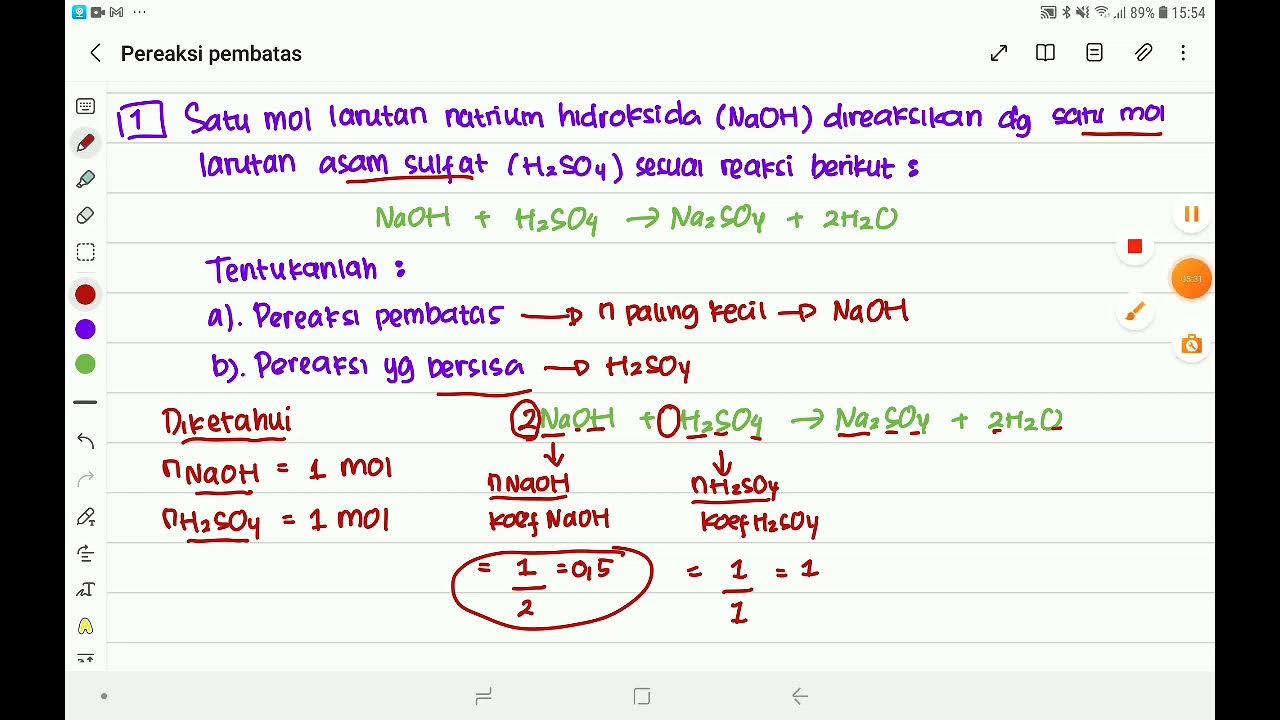 89% 15:54
Pereaksi pembatas
1 Satu mol larutan natrium hidroksida (NaOH) direaksikan dg satu mol
larutan asam sulfat (H₂SO₄) sesuai reaksi berikut :
NaOH + H₂SO₄ → Na₂SO₄ + 2H₂O
Tentukanlah :
a). Pereaksi pembatas → n paling kecil → NaOH
b). Pereaksi yg bersisa → H₂SO₄
Diketahui
2NaOH + H₂SO₄ → Na₂SO₄ + 2H₂O
nNaOH = 1 mol
nH₂SO₄ = 1 mol
nNaOH
koef NaOH
nH₂SO₄
koef H₂SO₄
= 1/2 = 0,5
= 1/1 = 1
05:31